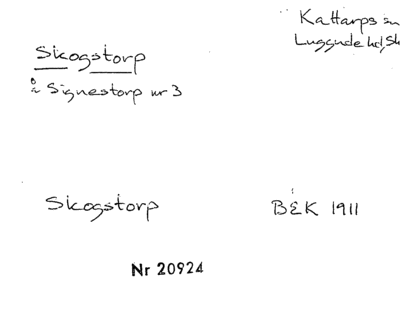 Kattarps sn
Luggude hd, Sk
Skogstorp
å Signestorp nr 3
Skogstorp BEK 1911
Nr 20924